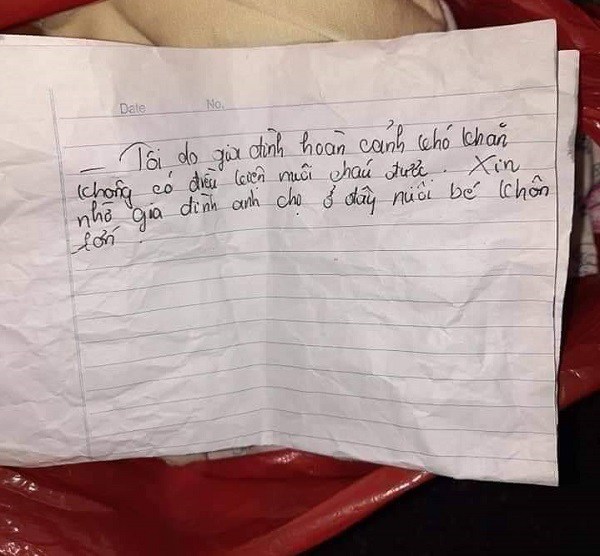 Date No.
– Tôi do gia đình hoàn cảnh khó khăn
không có điều kiện nuôi cháu được. Xin
nhờ gia đình anh chị ở đây nuôi bé khôn
lớn.